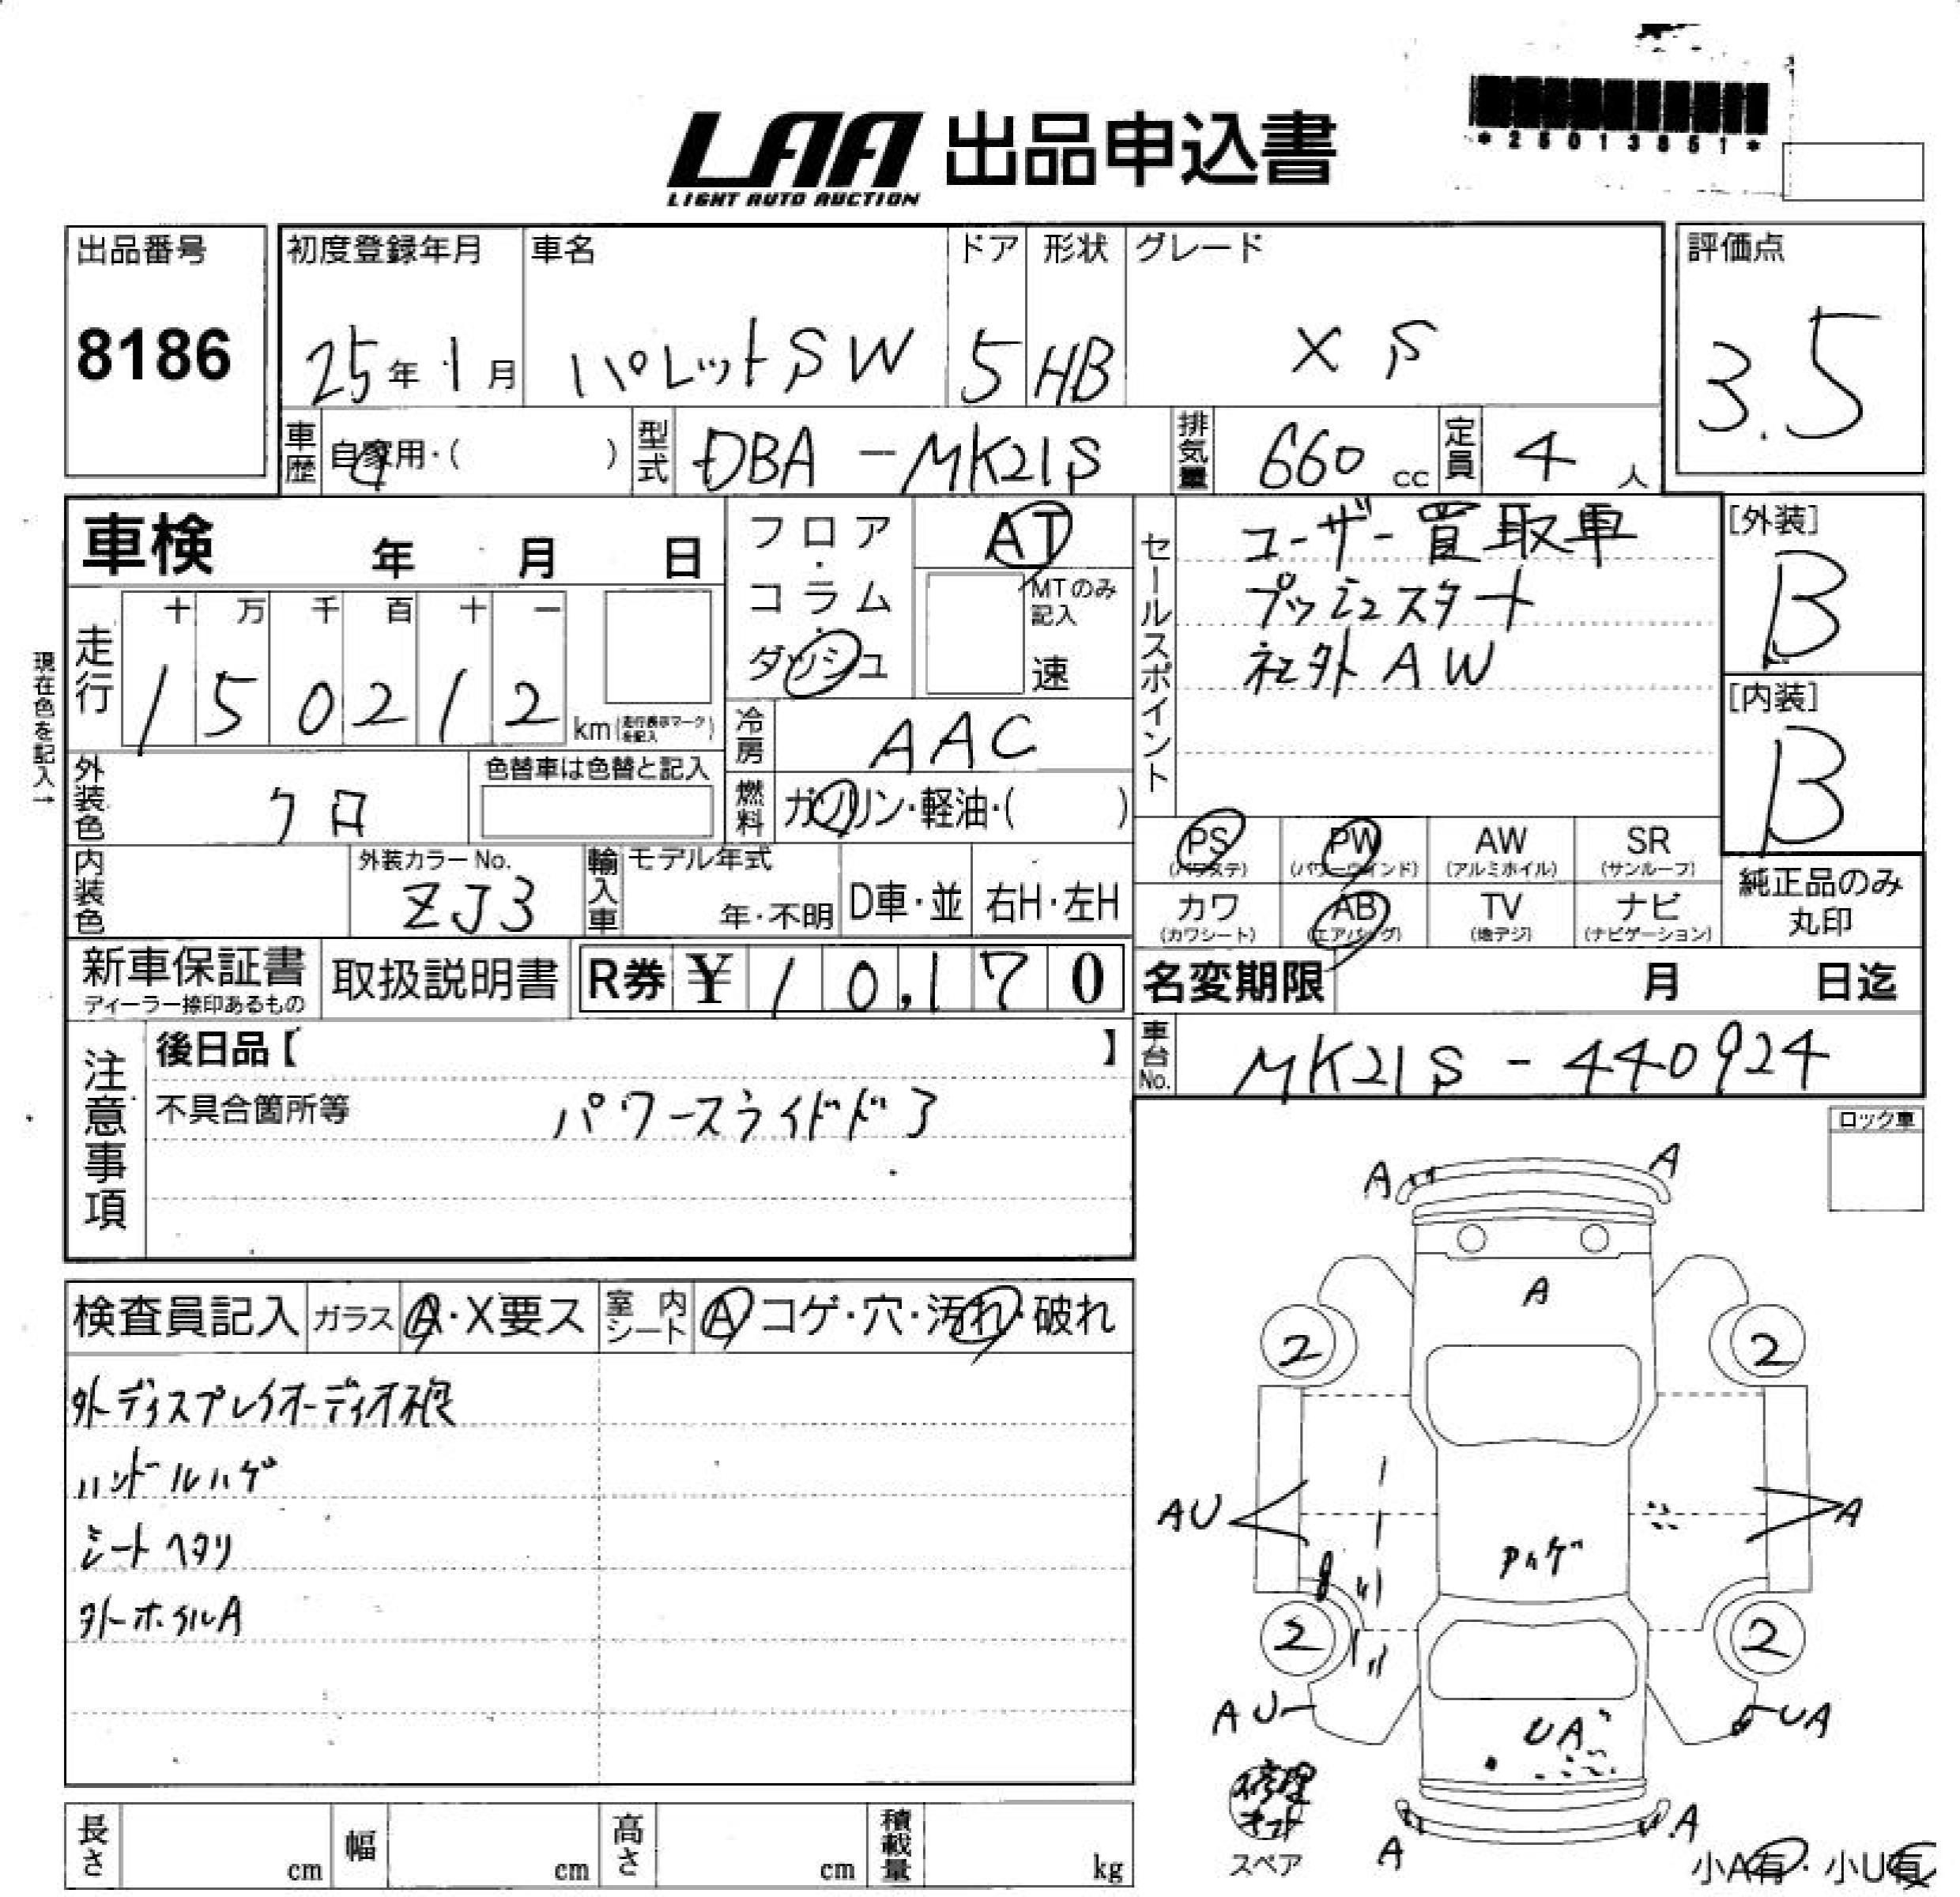 LAA 出品申込書
LIGHT AUTO AUCTION
*25013851*
出品番号
8186
初度登録年月
25年1月
車名
パレットSW
ドア
5
形状
HB
グレード
XS
評価点
3.5
車歴
自家用・( )
型式
DBA-MK21S
排気量
660 cc
定員
4人
車検 年 月 日
フロア・コラム・ダッシュ
AT
MTのみ記入
速
現在色を記入→
走行
十 万 千 百 十 一
150212 km (走行表示マークを記入)
冷房
AAC
外装色
クロ
色替車は色替と記入
燃料
ガソリン・軽油・( )
内装色
外装カラーNo.
ZJ3
輸入車
モデル年式
年・不明
D車・並
右H・左H
セールスポイント
ユーザー買取車
プッシュスタート
社外AW
[外装]
B
[内装]
B
PS (パワステ)
PW (パワーウインド)
AW (アルミホイル)
SR (サンルーフ)
カワ (カワシート)
AB (エアバッグ)
TV (地デジ)
ナビ (ナビゲーション)
純正品のみ
丸印
新車保証書
ディーラー捺印あるもの
取扱説明書
R券 ¥10,170
名変期限 月 日迄
車台No.
MK21S-440924
注意事項
後日品【 】
不具合箇所等 パワースライドドア
ロック車
検査員記入
ガラス A・X要ス
室内シート A コゲ・穴・汚れ・破れ
外ディスプレイオーディオ
ハンドルハゲ
シートヘタリ
外ホイルA
A A
A
2 2
AU A
ハゲ
2 2
AU UA
UA
修理キット
スペア
A A
小A有・小U有
長さ cm
幅 cm
高さ cm
積載量 kg